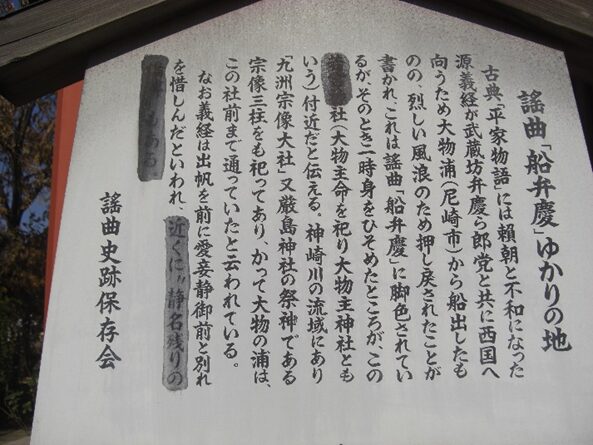 謡曲「船弁慶」ゆかりの地
古典「平家物語」には頼朝と不和になった
源義経が武蔵坊弁慶ら郎党と共に西国へ
向うため大物浦(尼崎市)から船出したも
のの、烈しい風浪のため押し戻されたことが
書かれ、これは謡曲「船弁慶」に脚色されてい
るが、そのとき一時身をひそめたところが、この
社(大物主命を祀り大物主神社とも
いう)付近だと伝える。神崎川の流域にあり
「九洲宗像大社」又厳島神社の祭神である
宗像三柱をも祀ってあり、かって大物の浦は、
この社前まで通っていたと云われている。
なお義経は出帆を前に愛妾静御前と別れ
を惜しんだといわれ、近くに〃静名残りの
もある
謡曲史跡保存会